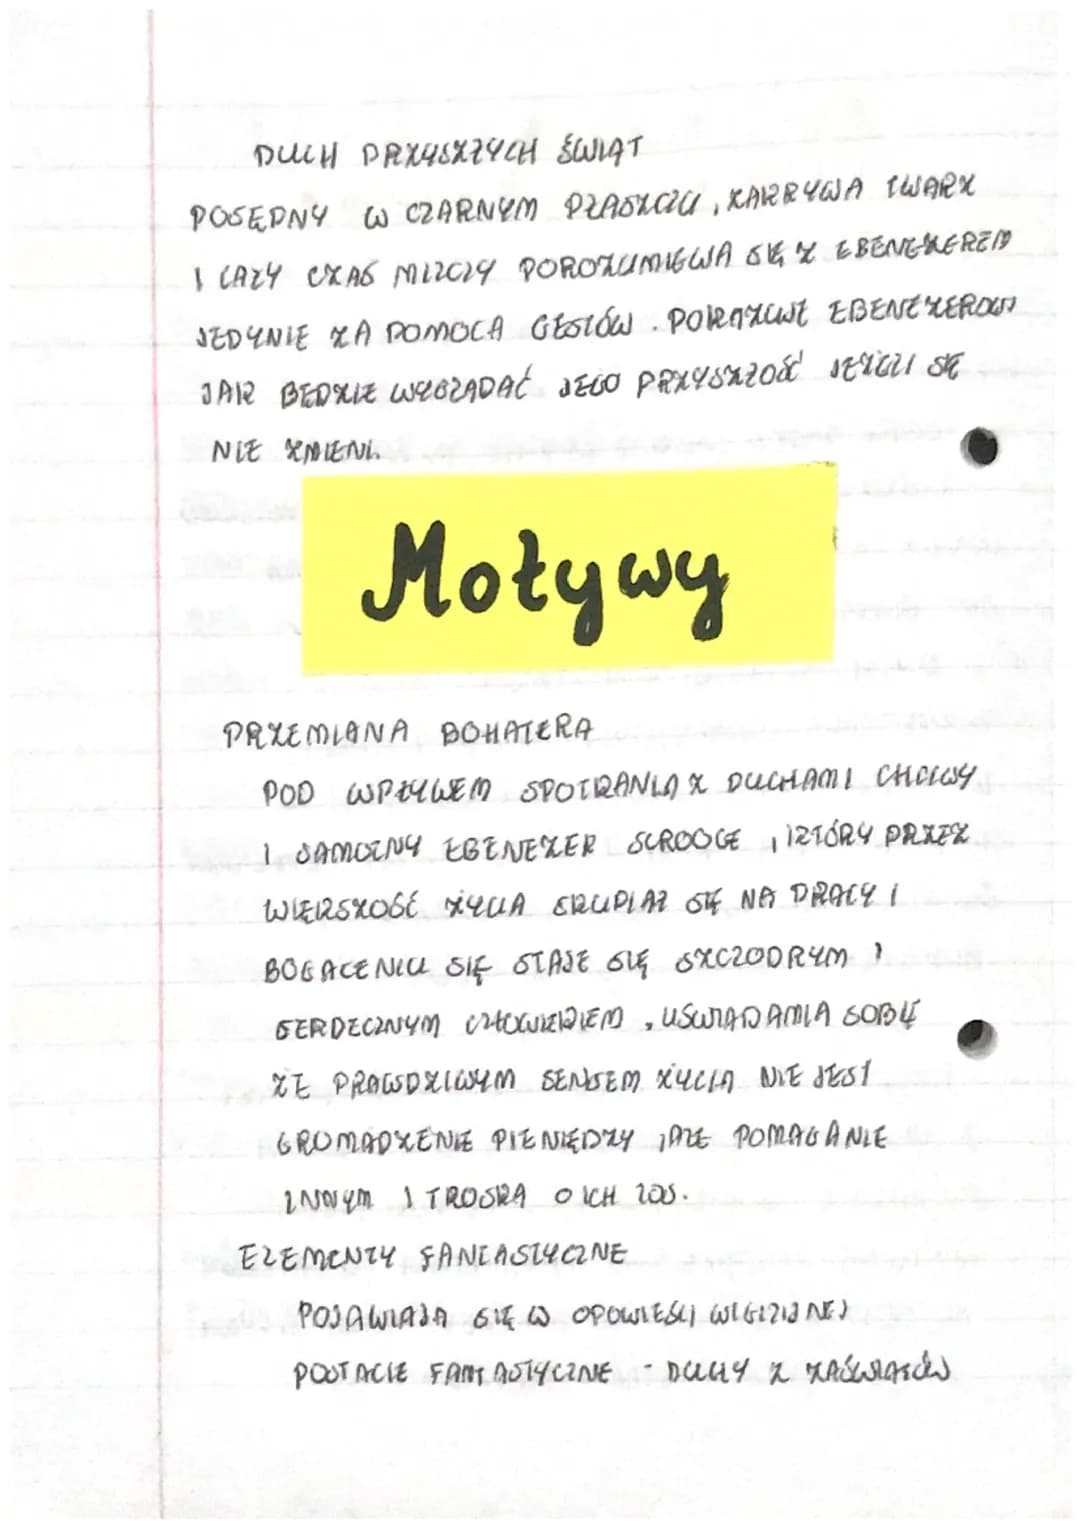 DUCH PRZYSZŁYCH ŚWIĄT
POSĘPNY W CZARNYM PŁASZCZU, ZAKRYWA TWARZ
I CAŁY CZAS MILCZY POROZUMIEWA SIĘ Z EBENEZEREM
JEDYNIE ZA POMOCA GESTÓW. POKAZUJE EBENEZEROWI
JAK BEDZIE WYGLĄDAĆ JEGO PRZYSZŁOŚĆ JEŻELI SIĘ
NIE ZMIENI.
Motywy
PRZEMIANA BOHATERA
POD WPŁYWEM SPOTKANIA Z DUCHAMI CHCIWY
I SAMOTNY EBENEZER SCROOGE, KTÓRY PRZEZ
WIĘKSZOŚĆ ŻYCIA SKUPIAŁ SIĘ NA PRACY I
BOGACENIU SIĘ STAJE SIĘ SZCZODRYM I
SERDECZNYM CZŁOWIEKIEM, USWIADAMIA SOBIE
ŻE PRAWDZIWYM SENSEM ŻYCIA NIE JEST
GROMADZENIE PIENIĘDZY, ALE POMAGANIE
INNYM I TROSKA O ICH LOS.
ELEMENTY FANTASTYCZNE
POJAWIAJA SIĘ W OPOWIEŚCI WIGILIJNEJ
POSTACIE FANTASTYCZNE - DUCHY Z ZAŚWIATÓW